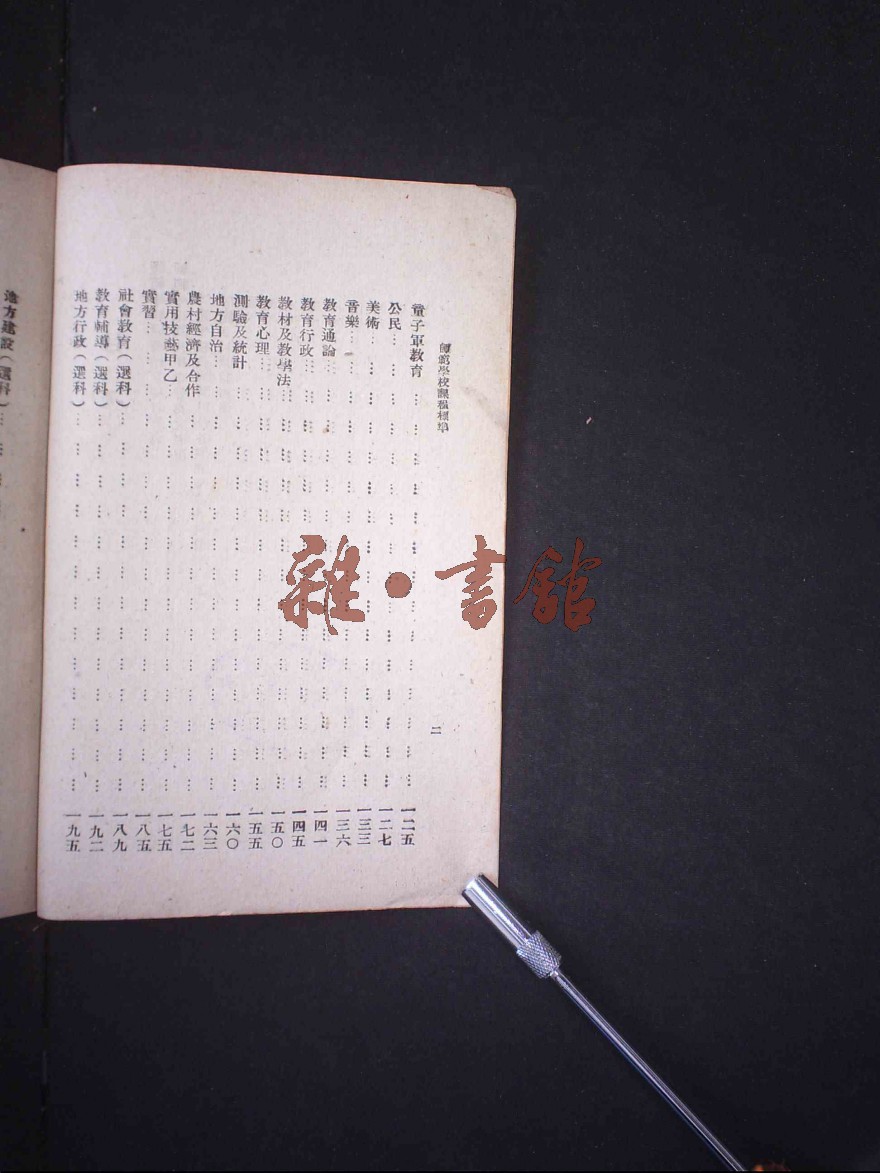 師範學校課程標準
二
童子軍教育……一二五
公民……一二七
美術……一三三
音樂……一三六
教育通論……一四一
教育行政……一四五
教材及教學法……一五〇
教育心理……一五五
測驗及統計……一六〇
地方自治……一六三
農村經濟及合作……一七二
實用技藝甲乙……一七五
實習……一八五
社會教育(選科)……一八九
教育輔導(選科)……一九二
地方行政(選科)……一九五
地方建設(選科)……
雜·書館